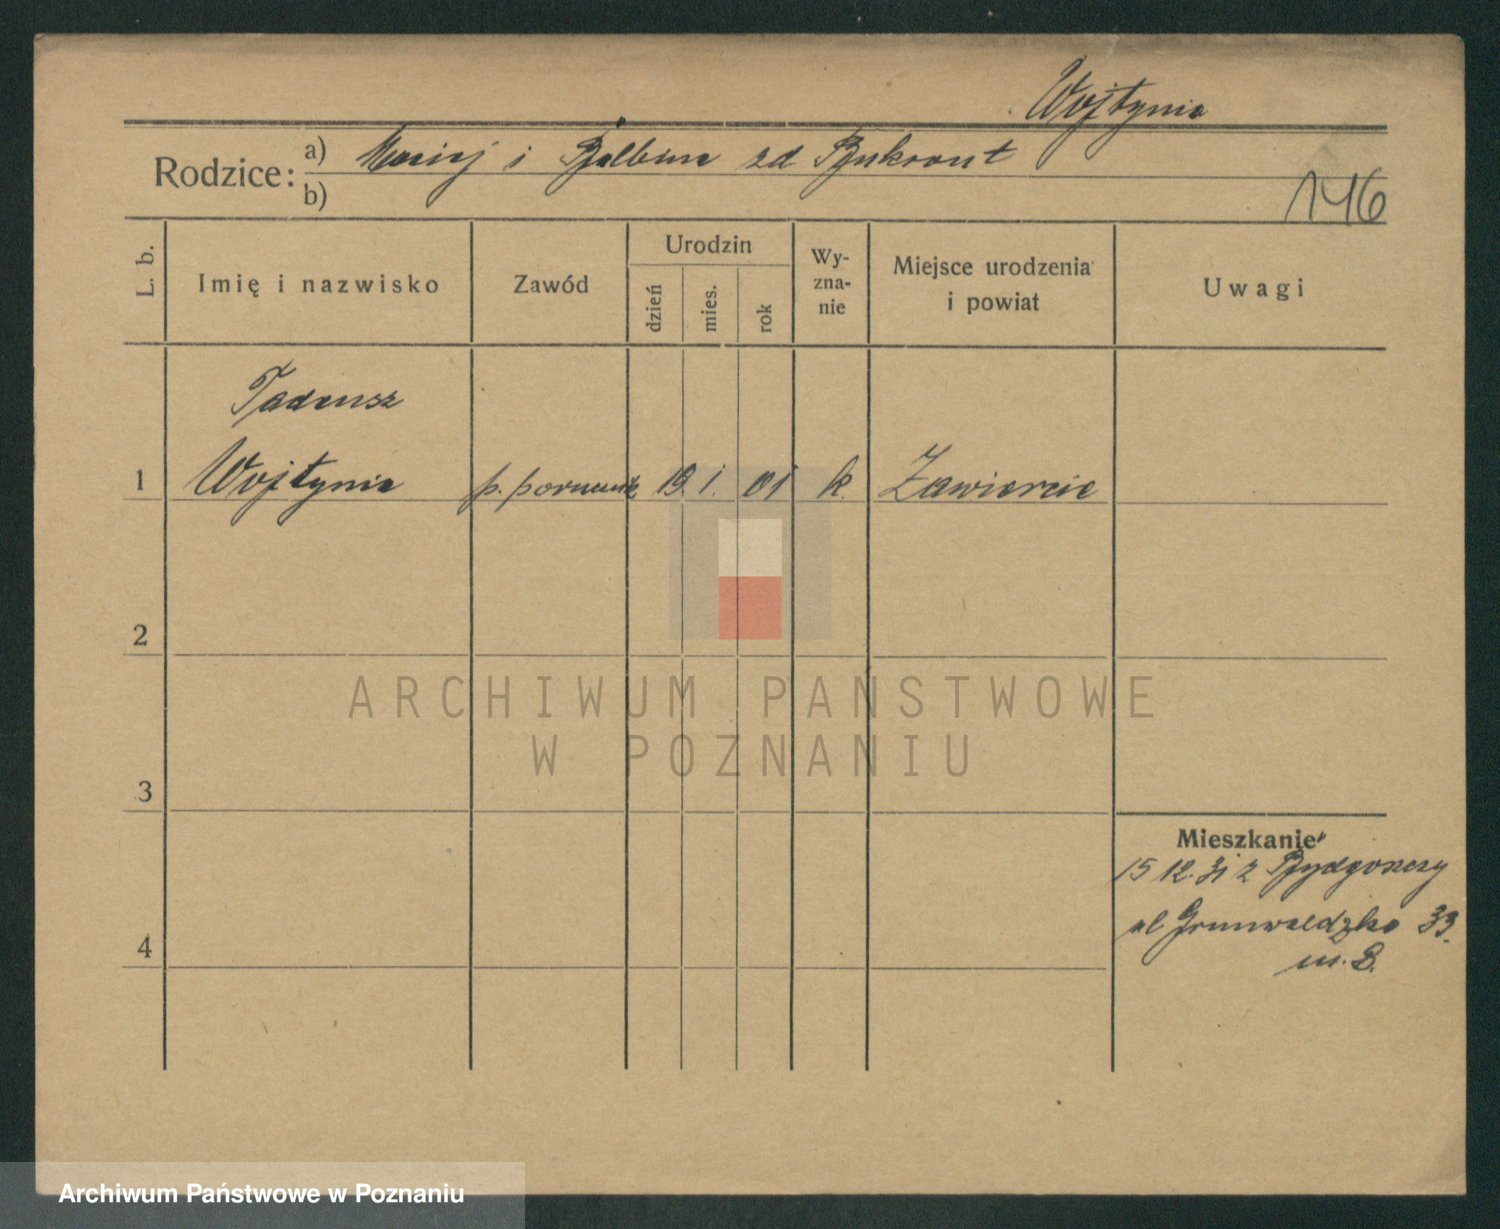 Wojtynia
Rodzice: a) Maciej i Balbina zd Bukrant
b)
146
L. b.
Imię i nazwisko
Zawód
Urodzin
dzień
mies.
rok
Wy-
zna-
nie
Miejsce urodzenia
i powiat
Uwagi
Tadeusz
1 Wojtynia p. porucznik 19. 1. 01 k. Zawiercie
2
3
4
Mieszkanie
15 12. 31 z Bydgoszczy
ul Grunwaldzka 33.
m. 8.
ARCHIWUM PAŃSTWOWE
W POZNANIU
Archiwum Państwowe w Poznaniu